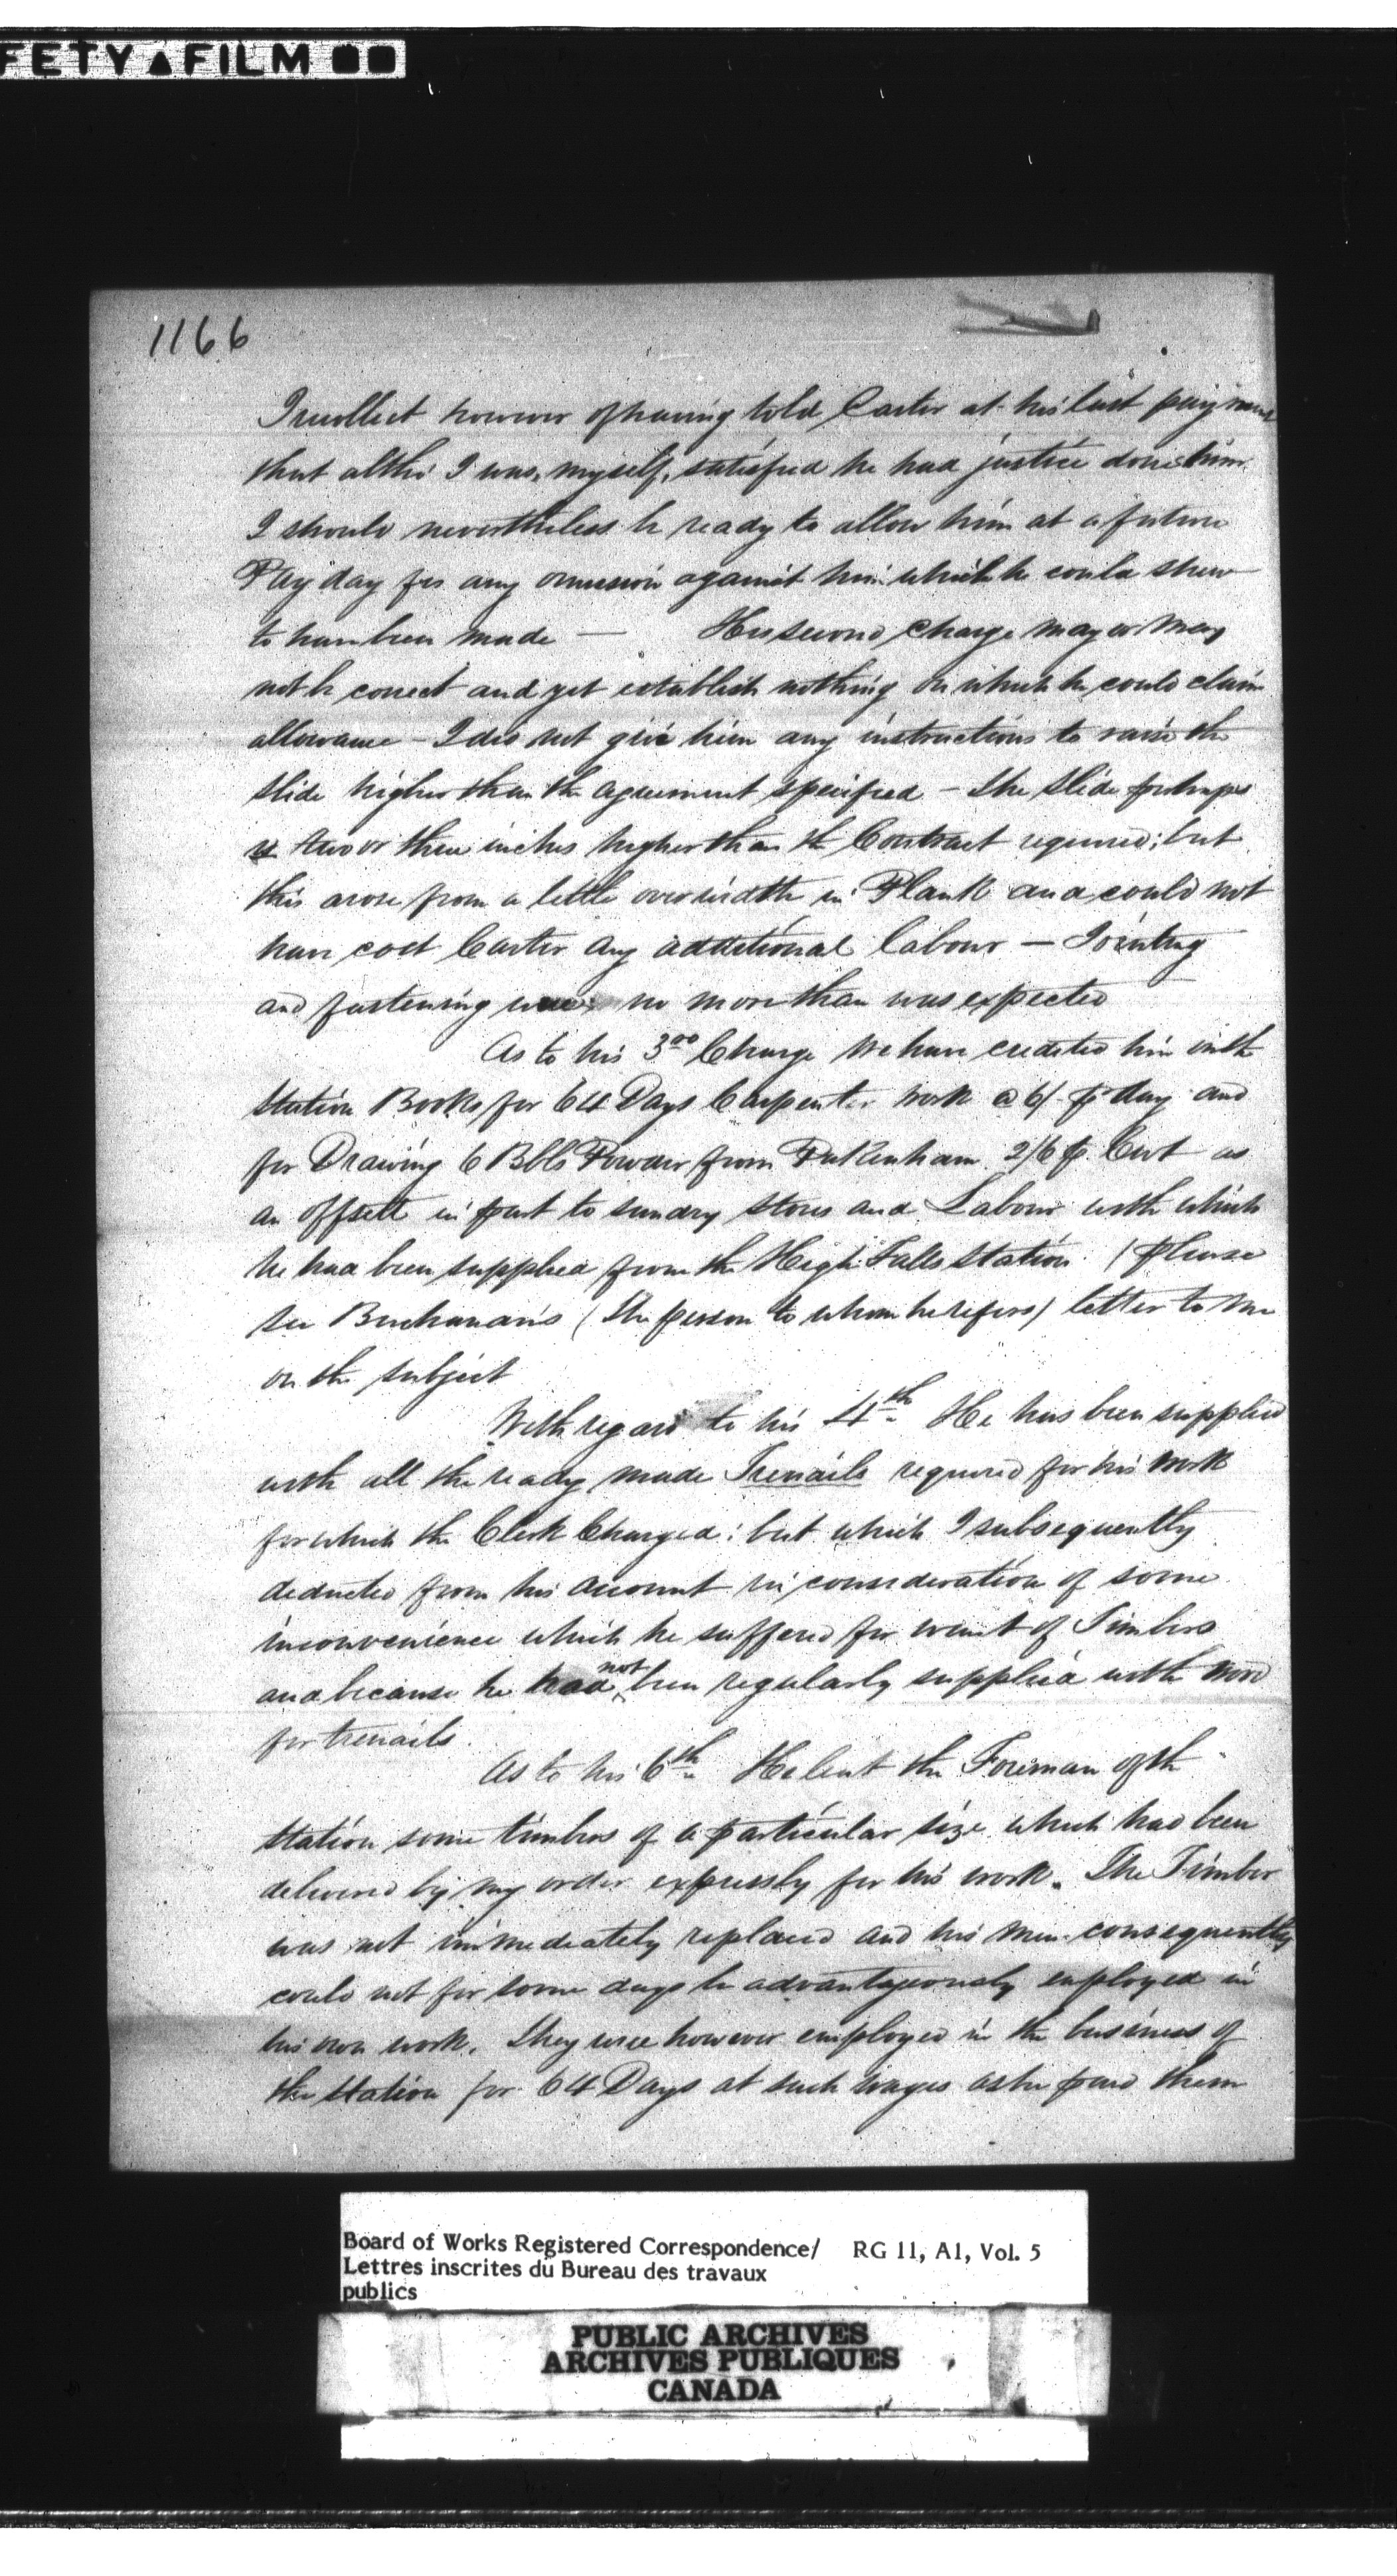 FETY▲FILM
1166
I recollect however of having told Carter at his last payment
that altho' I was, myself, satisfied he had justice done him
I should nevertheless be ready to allow him at a future
Pay day for any omission against him which he could shew
to have been made — His second charge may or may
not be correct and yet establish nothing on which he could claim
allowance – I did not give him any instructions to raise the
Slide higher than the agreement specified – the Slide perhaps
is two or three inches higher than the Contract required; but
this arose from a little over width in Plank and could not
have cost Carter any additional labour — Jointing
and fastening were no more than was expected
As to his 3rd Charge We have credited him in the
Station Books for 64 Days Carpenter work @ 6/ p day and
for Drawing 6 Bbls Powder from Pakenham 2/6 p. Cwt as
an offsett in part to sundry stores and Labour with which
he had been supplied from the High Falls Station. (please
see Buchanan's (the person to whom he refers) letter to me
on the subject
With regard to his 4th He has been supplied
with all the ready made Trenails required for his work
for which the Clerk Charged: but which I subsequently
deducted from his account in consideration of some
inconvenience which he suffered for want of Timbers
and because he had not been regularly supplied with wood
for trenails.
As to his 6th He lent the Foreman of the
Station some timbers of a particular size which had been
delivered by my order expressly for his work. The Timber
was not immediately replaced and his men consequently
could not for some days be advantageously employed in
his own work. They were however employed in the business of
the station for 64 Days at such wages as he paid them
Board of Works Registered Correspondence/ RG 11, A1, Vol. 5
Lettres inscrites du Bureau des travaux
publics
PUBLIC ARCHIVES
ARCHIVES PUBLIQUES
CANADA